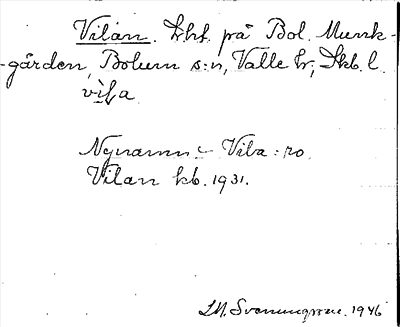 Vilan. Lht. på Bol. Munk-
-gården, Bolum s:n, Valle hr, Skb. l.
vìla
Nynamn - Vila : ro.
Vilan kb. 1931.
1946